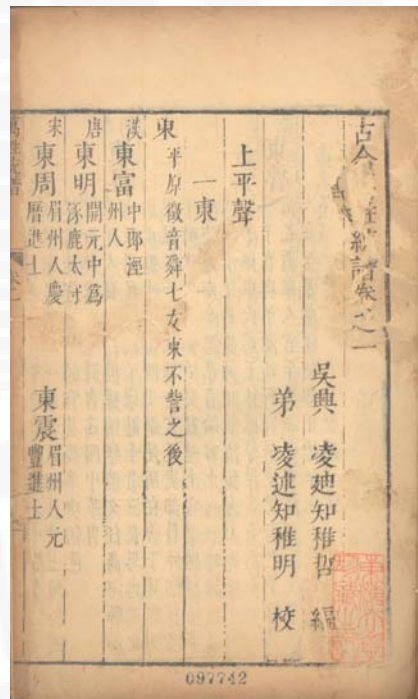 古今 姓統譜卷之一
吳興 凌迪知稚哲 編
弟 凌述知稚明 校
上平聲
一東
東 平原徵音舜七友東不訾之後
漢 東富 中郎涇州人
唐 東明 開元中為涿鹿太守
宋 東周 眉州人慶曆進士 東震 眉州人元豐進士
萬姓統譜 卷一
097742